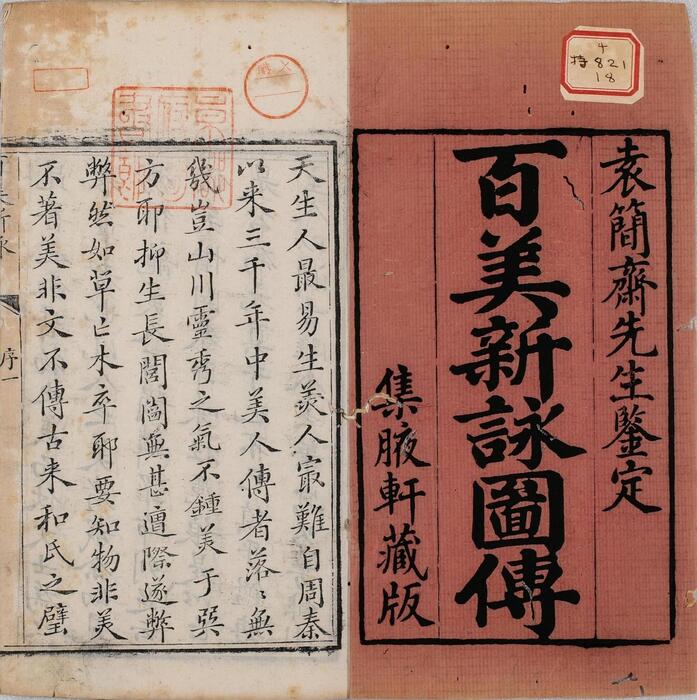 十
特821
18
袁簡齋先生鑒定
百美新詠圖傳
集腋軒藏版
天生人最易生美人最難自周秦
以来三千年中美人傳者落〻無
幾豈山川靈秀之氣不鍾美于巽
方耶抑生長閨無甚遭際遂弊
弊然如草亡木卒耶要知物非美
不著美非文不傳古来和氏之璧
百美新詠
序一